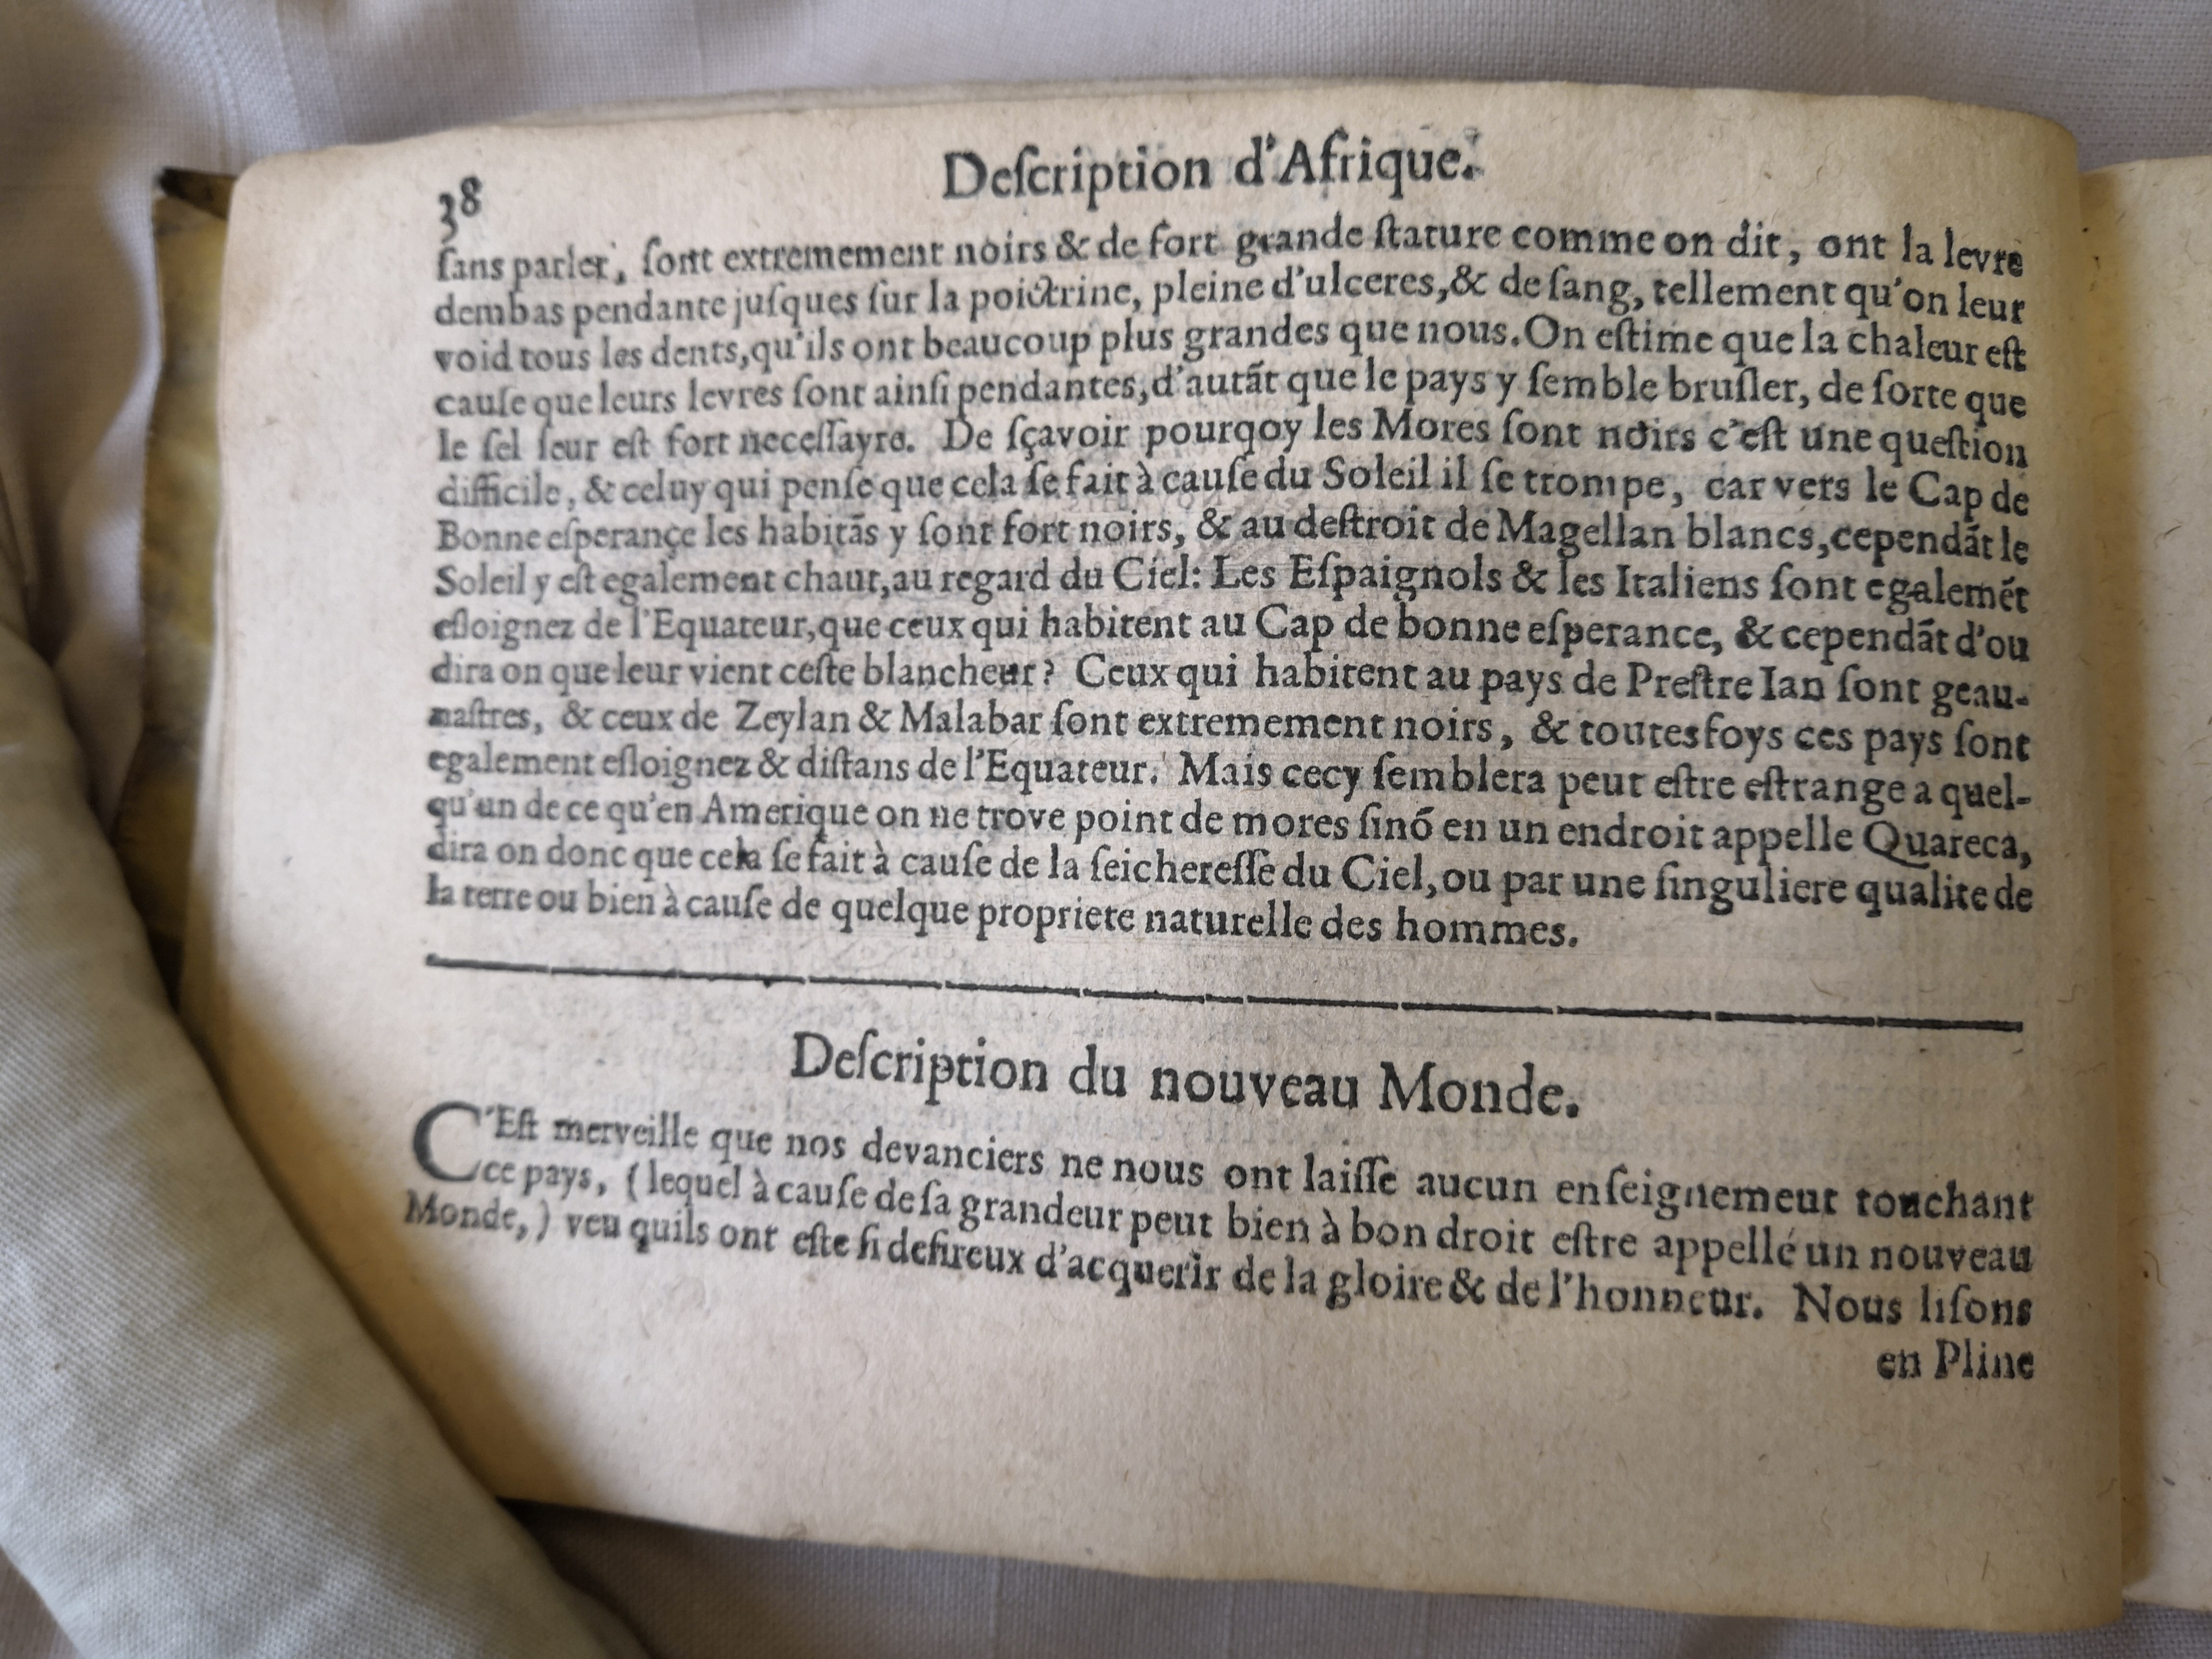 38
Deſcription d'Afrique.
ſans parler, ſont extremement noirs & de fort grande ſtature comme on dit, ont la levre
dembas pendante juſques ſur la poictrine, pleine d'ulceres,& de ſang, tellement qu'on leur
void tous les dents,qu'ils ont beaucoup plus grandes que nous.On eſtime que la chaleur eſt
cauſe que leurs levres ſont ainſi pendantes,d'autãt que le pays y ſemble bruſler, de ſorte que
le ſel leur eſt fort neceſſayre. De ſçavoir pourqoy les Mores ſont noirs c'eſt une queſtion
difficile, & celuy qui penſe que cela ſe fait à cauſe du Soleil il ſe trompe, car vers le Cap de
Bonne eſperançe les habitãs y ſont fort noirs, & au deſtroit de Magellan blancs,cependãt le
Soleil y eſt egalement chaut,au regard du Ciel: Les Eſpaignols & les Italiens ſont egalemẽt
eſloignez de l'Equateur,que ceux qui habitent au Cap de bonne eſperance, & cependãt d'ou
dira on que leur vient ceſte blancheur? Ceux qui habitent au pays de Preſtre Ian ſont geau-
naſtres, & ceux de Zeylan & Malabar ſont extremement noirs, & toutesfoys ces pays ſont
egalement eſloignez & diſtans de l'Equateur. Mais cecy ſemblera peut eſtre eſtrange a quel-
qu'un de ce qu'en Amerique on ne trove point de mores ſinõ en un endroit appelle Quareca,
dira on donc que cela ſe fait à cauſe de la ſeichereſſe du Ciel,ou par une ſinguliere qualite de
la terre ou bien à cauſe de quelque propriete naturelle des hommes.
Deſcription du nouveau Monde.
C'Eſt merveille que nos devanciers ne nous ont laiſſe aucun enſeignemeut touchant
ce pays, (lequel à cauſe de ſa grandeur peut bien à bon droit eſtre appellé un nouveau
Monde,) veu quils ont eſte ſi deſireux d'acquerir de la gloire & de l'honneur. Nous liſons
en Pline